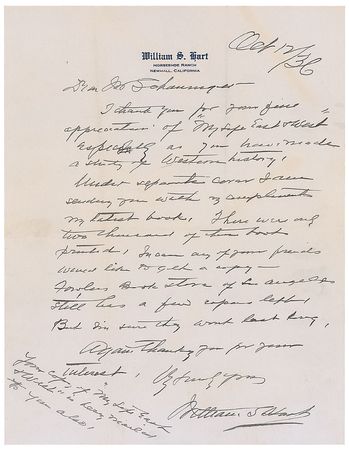 William S. Hart
HORSESHOE RANCH
NEWHALL, CALIFORNIA
Oct 12/36
Dear Mr
I thank you for your fine
appreciation of "My Life East & West"
Especially as you have made
a study of Western history.
Under separate cover I am
sending you with my compliments
my latest book. There were only
two thousand of this book
printed. In case any of your friends
would like to get a copy—
Fowlers Book Store of Los Angeles
still has a few copies left.
But I'm sure they wont last long.
Again thank you for your
interest.
William S Hart
Your copy of "My Life East
& West" is being mailed
to you also.